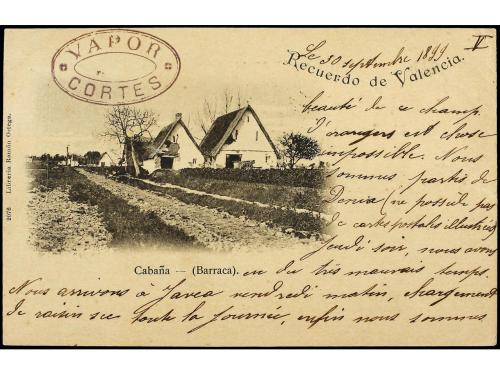 VAPOR
CORTES
V
Le 30 septembre 1899
Recuerdo de Valencia.
beauté de ce champ
d'orangers est chose
impossible. Nous
sommes partis de
Denia (ne possède pas
de cartes postales illustrées
jeudi soir, nous avons
Cabaña — (Barraca).
eu du très mauvais temps.
Nous arrivons à Javea vendredi matin, chargement
de raisin sec toute la journée, enfin nous sommes
2072. Librería Ramón Ortega.